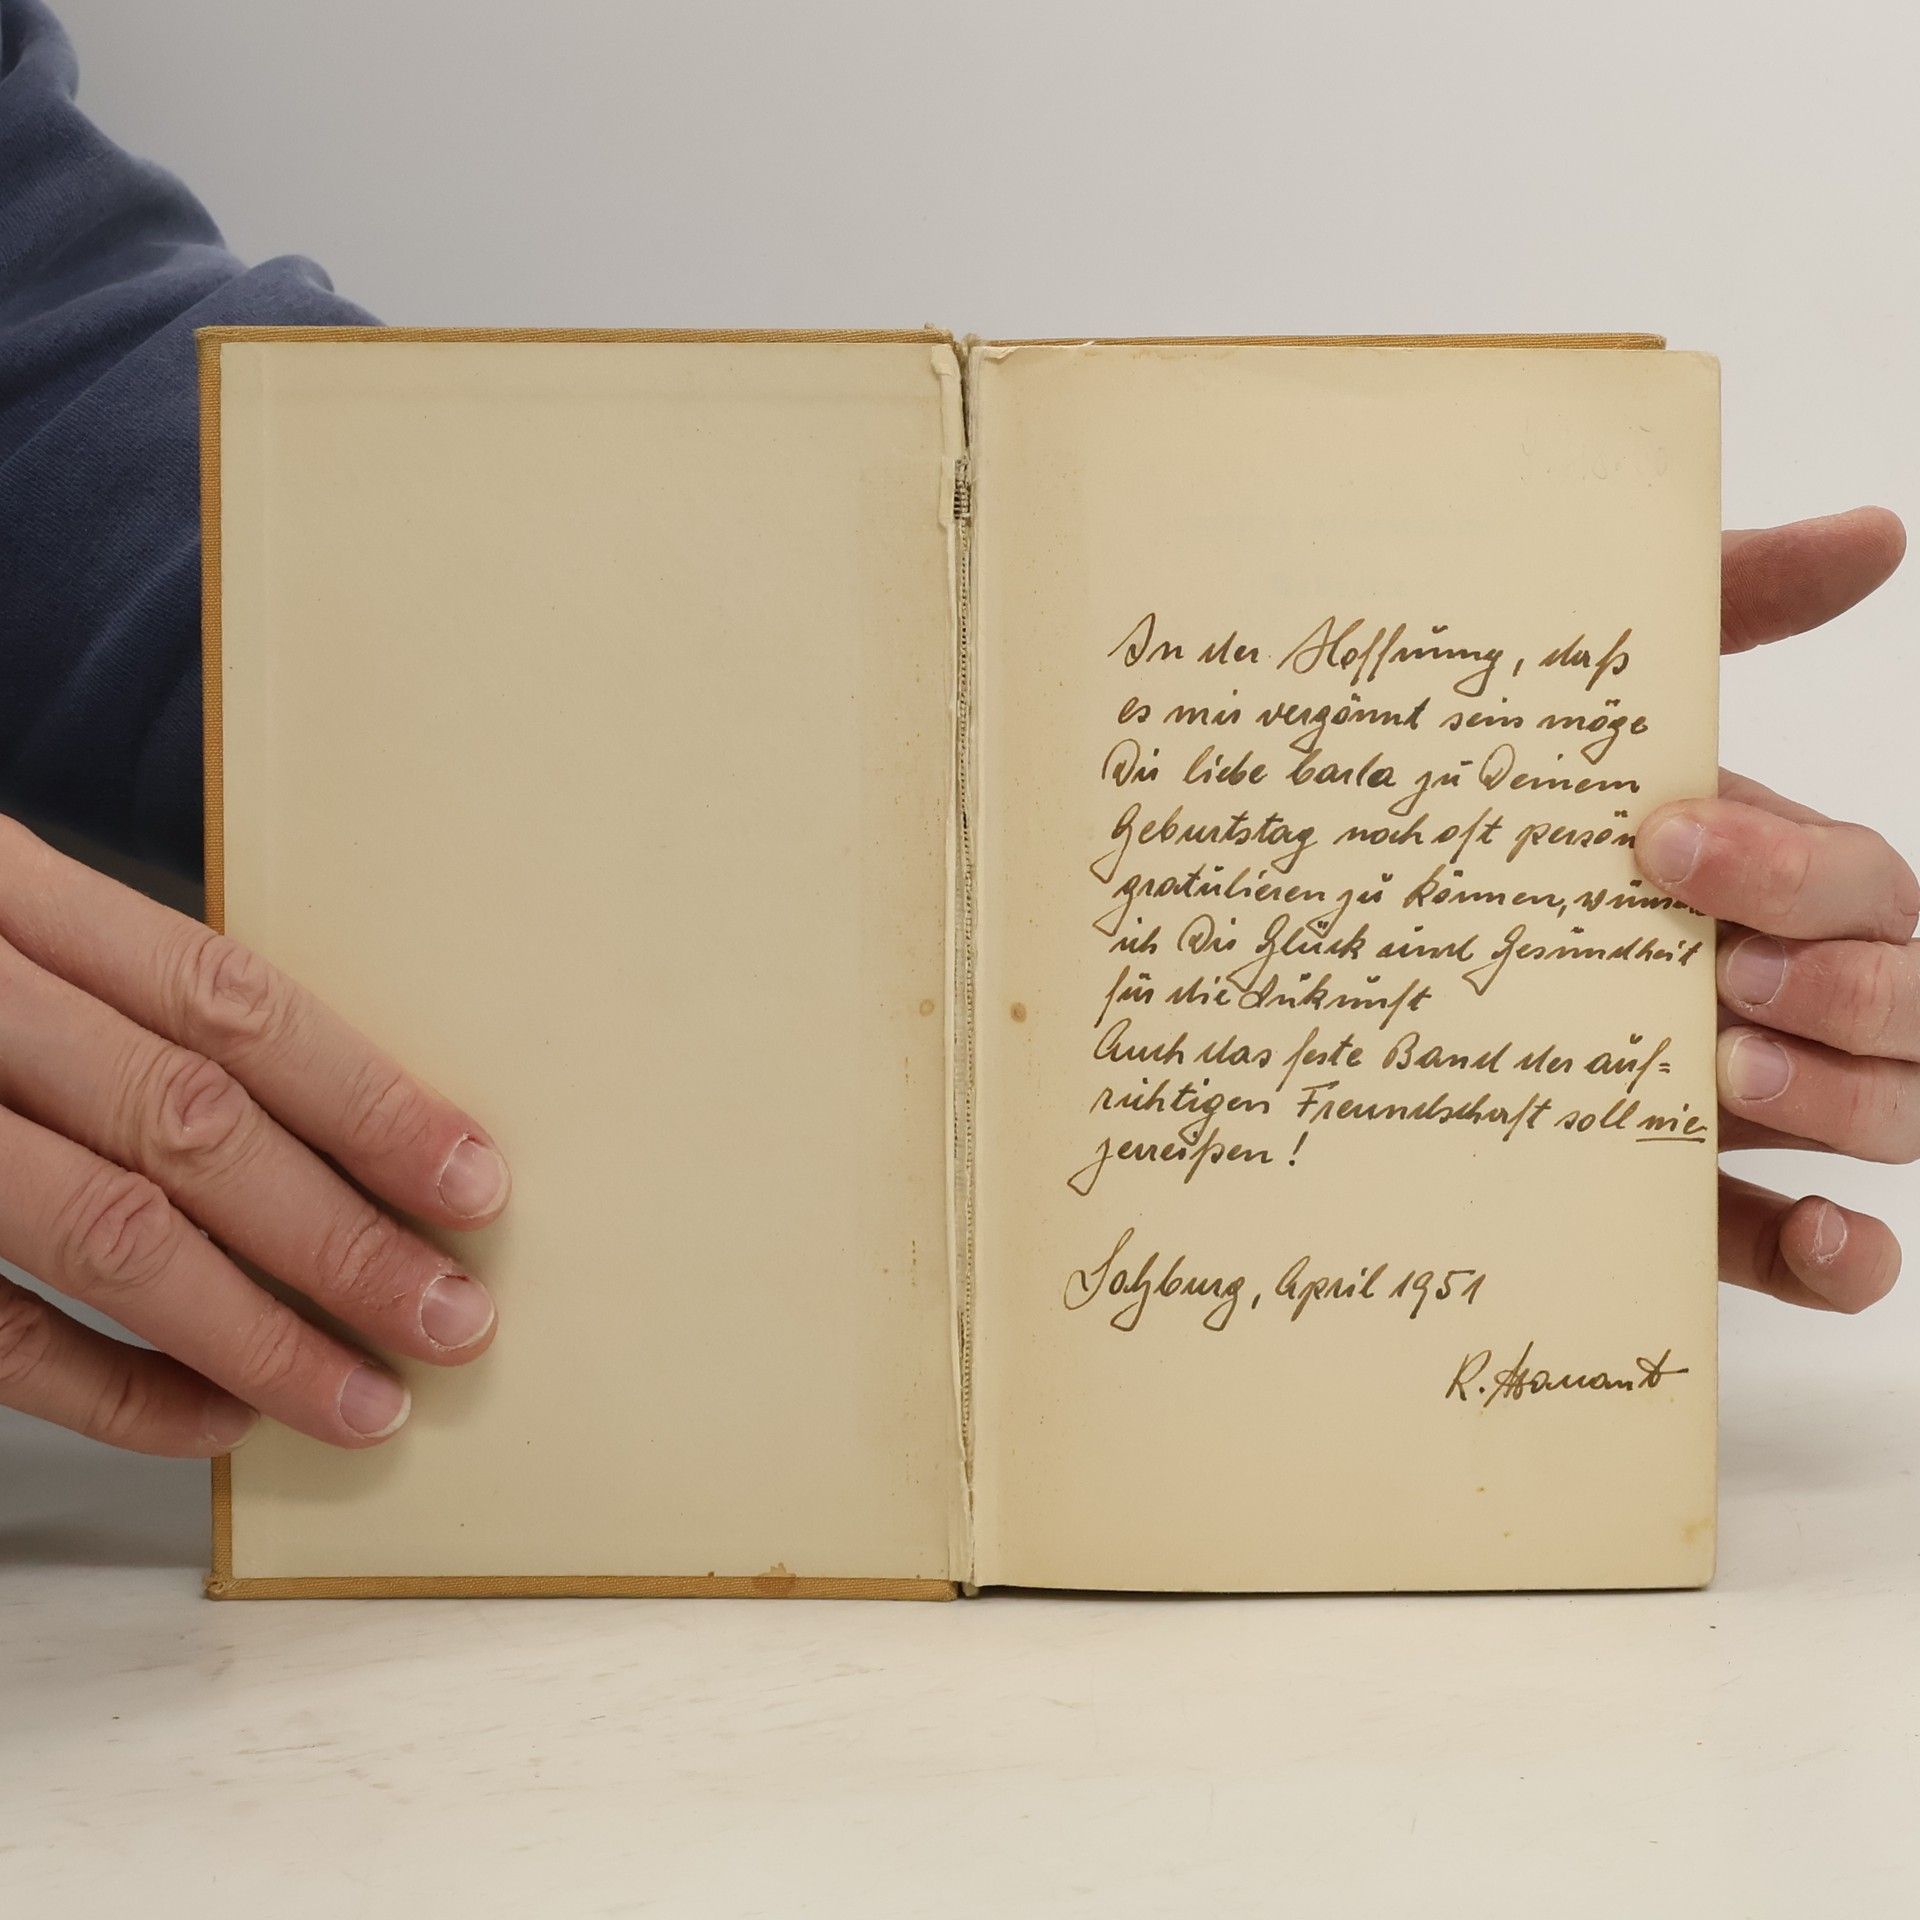 In der Hoffnung, daß
es mir vergönnt sein möge
Dir liebe Carla zu Deinem
Geburtstag noch oft persön
gratulieren zu können, wünsch
ich Dir Glück und Gesundheit
für die Zukunft
Auch das feste Band der auf=
richtigen Freundschaft soll nie
zerreißen!
Salzburg, April 1951
R.